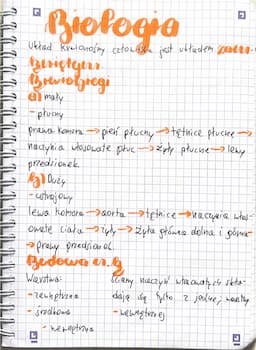 Biologia
Układ krwionośny człowieka jest układem zamk-
niętym.
Krwiobiegi
a) mały
- płucny
prawa komora → pień płucny → tętnice płucne →
naczynia włosowate płuc → żyły płucne → lewy
przedsionek.
b) Duży
- ustrojowy
lewa komora → aorta → tętnice → naczynia włos-
owate ciała → żyły → żyła główna dolna i górna
→ prawy przedsionek.
Budowa
Warstwa: ściany naczyń włosowatych skła-
- zewnętrzna dają się tylko z jednej warstwy
- środkowa - wewnętrznej
- wewnętrzna